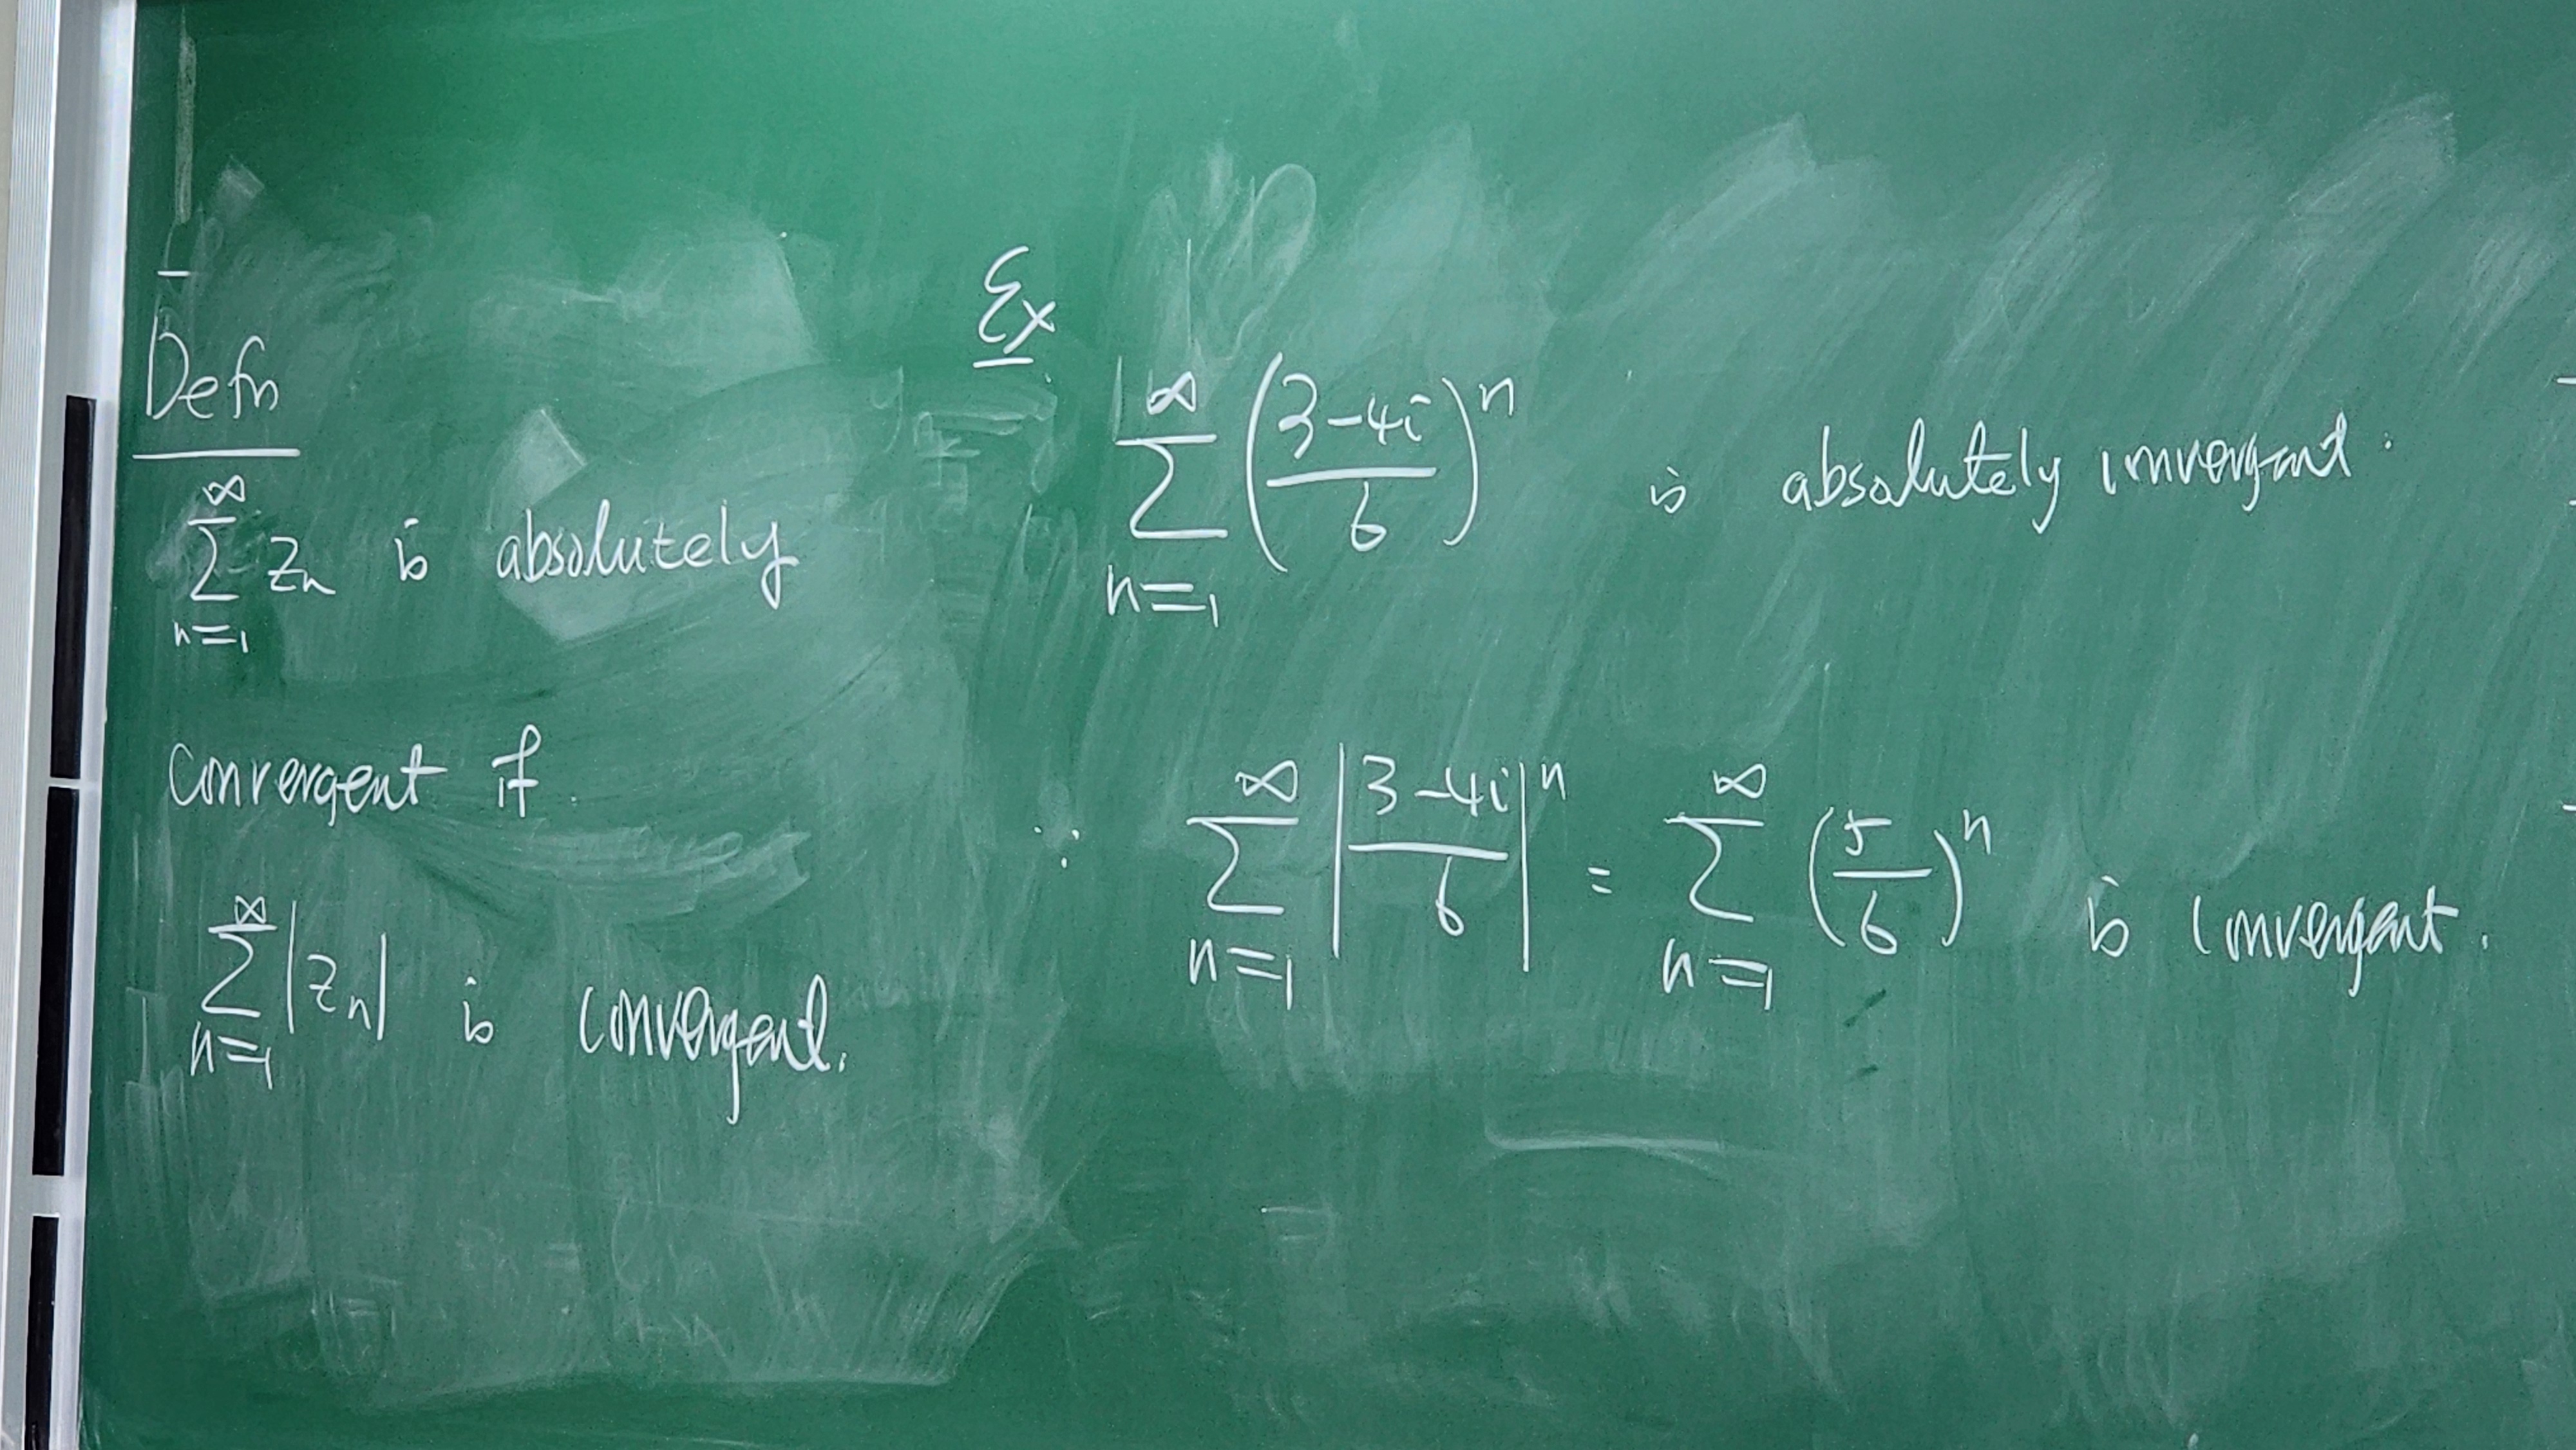 Defn
∞
∑ zₙ is absolutely
n=1
convergent if
∞
∑ |zₙ| is convergent.
n=1
Ex
∞
∑ ((3-4i)/6)ⁿ is absolutely convergent.
n=1
∵ ∑_{n=1}^{∞} |(3-4i)/6|ⁿ = ∑_{n=1}^{∞} (5/6)ⁿ is convergent.